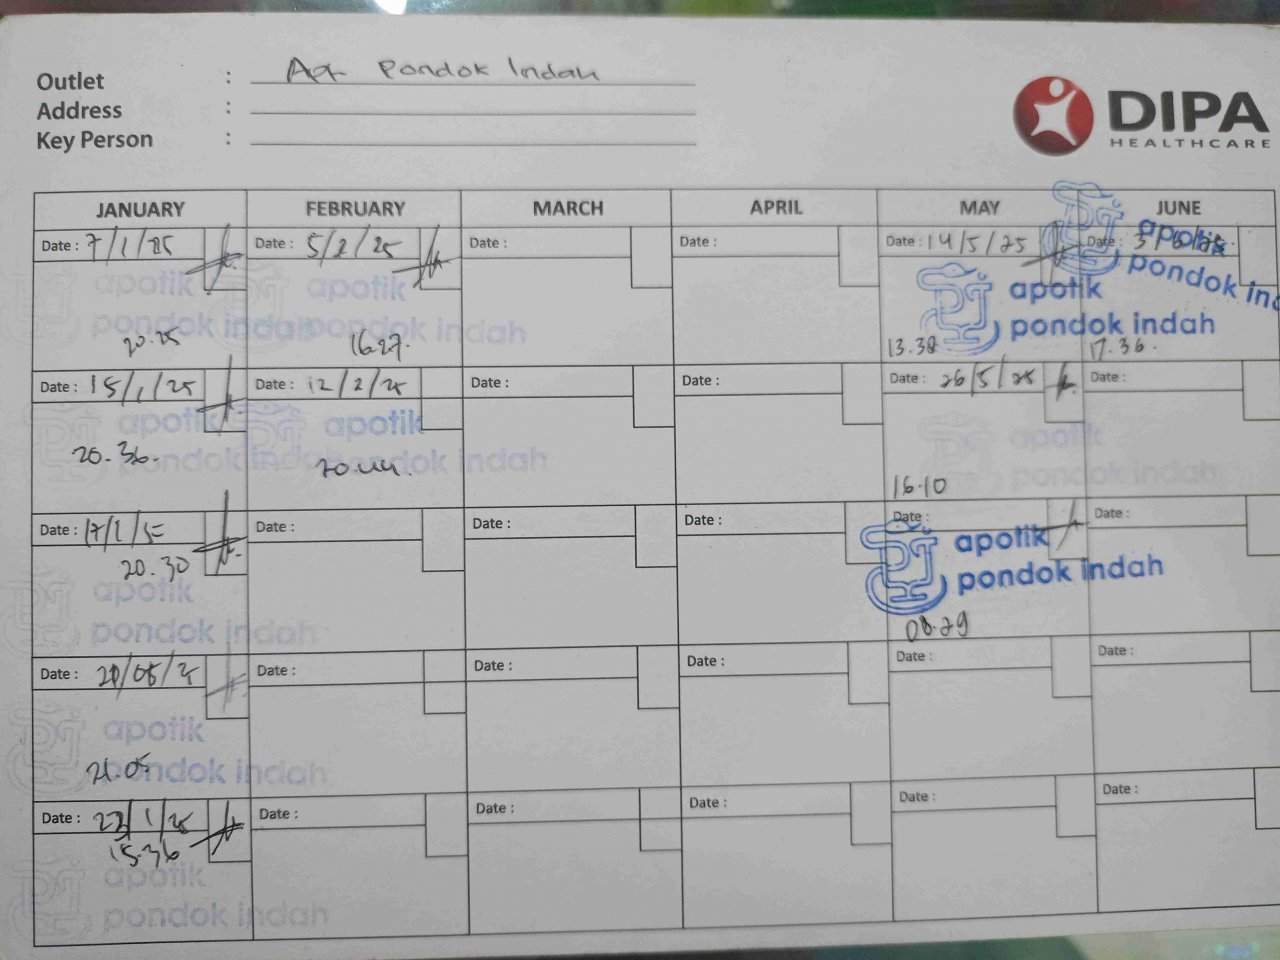 Outlet : Apt Pondok Indah
Address :
Key Person :
DIPA
HEALTHCARE
JANUARY FEBRUARY MARCH APRIL MAY JUNE
Date : 7/1/25 Date : 5/2/25 Date : Date : Date : 14/5/25 Date : 3/6/25
apotik apotik apotik apotik
pondok indah pondok indah pondok indah pondok indah
20.25 16.27. 13.38 17.36.
Date : 15/1/25 Date : 12/2/25 Date : Date : Date : 26/5/25 Date :
apotik apotik apotik
pondok indah pondok indah pondok indah
20.36. 20.44. 16.10
Date : 17/1/5 Date : Date : Date : Date : Date :
20.30
apotik apotik
pondok indah pondok indah
08.29
Date : Date : Date : Date : Date : Date :
apotik
pondok indah
21.05
Date : 1/25 Date : Date : Date : Date : Date :
15.36
apotik
pondok indah